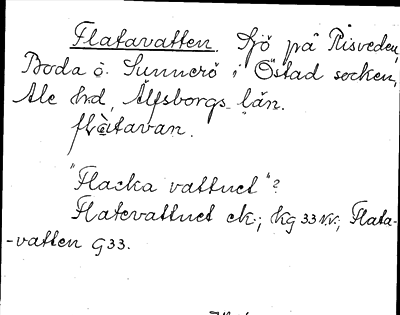 Flatavatten. Sjö på Risveden,
Boda o. Sunnerö i Östad socken,
Ale hd, Älfsborgs län.
flàtavan.
"Flacka vattnet"?
Flatevattnet ek.; kg 33 NV.; Flata-
-vatten G33.